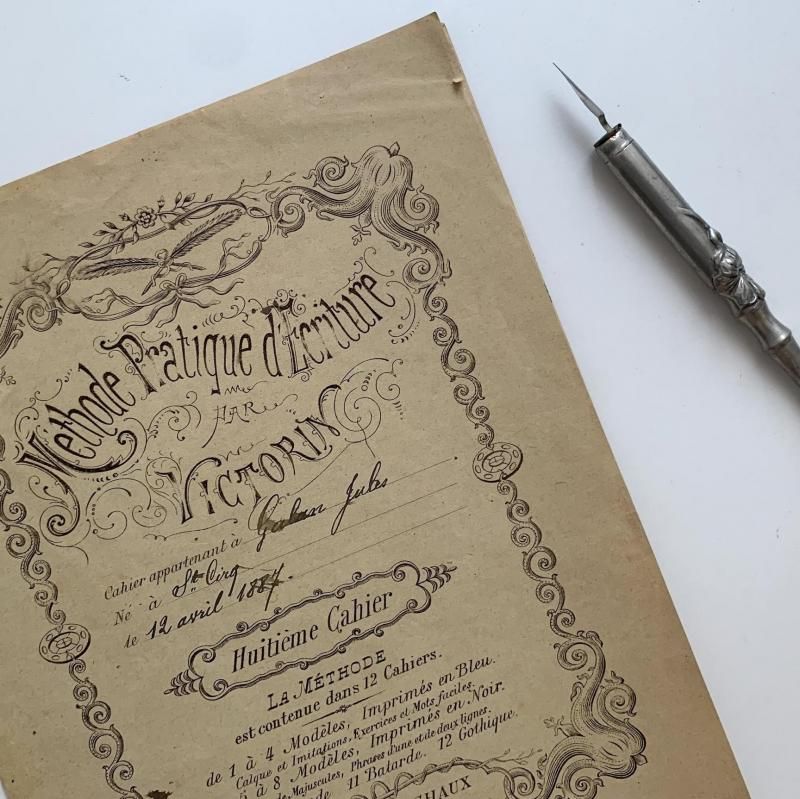 Méthode Pratique d'Ecriture
PAR
VICTORIN
Cahier appartenant à Galan Jules
Né à St Cirq
le 12 avril 1887.
Huitième Cahier
LA MÉTHODE
est contenue dans 12 Cahiers.
de 1 à 4 Modèles, Imprimés en Bleu.
Calque et Imitations, Exercices et Mots faciles.
5 à 8 Modèles, Imprimés en Noir.
de Majuscules, Phrases d'une et de deux lignes.
11 Batarde. 12 Gothique.